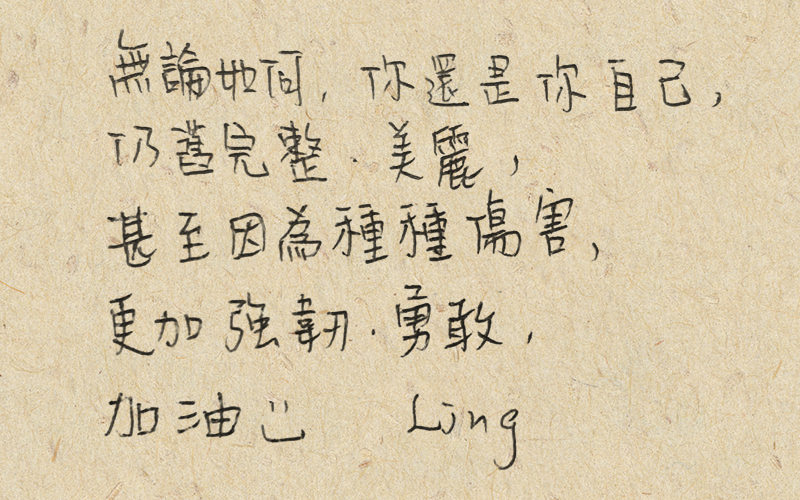 無論如何,你還是你自己,
仍舊完整.美麗,
甚至因為種種傷害,
更加強韌.勇敢,
加油 Ling